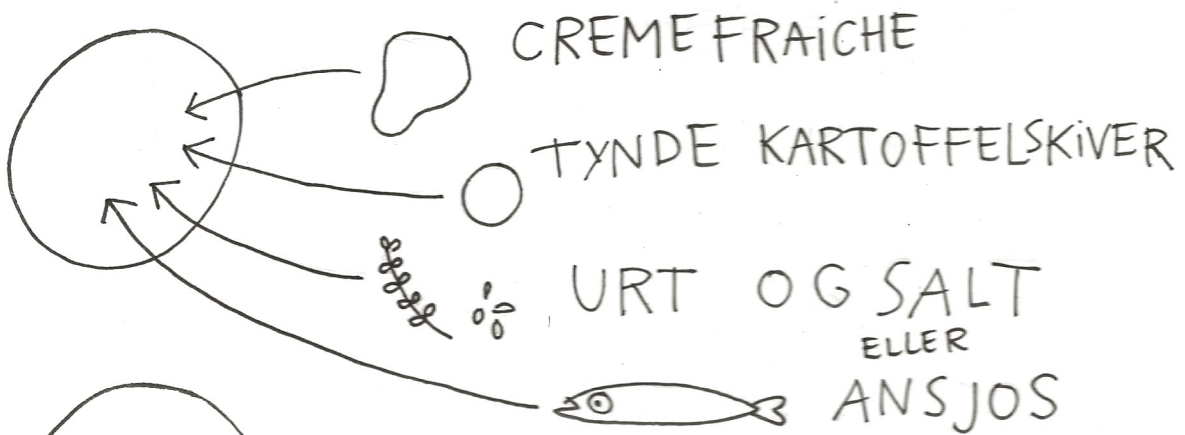 CREME FRAiCHE
TYNDE KARTOFFELSKiVER
URT OG SALT
ELLER
ANSJOS